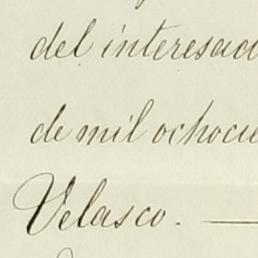 del interesad
de mil ochocie
Velasco. —